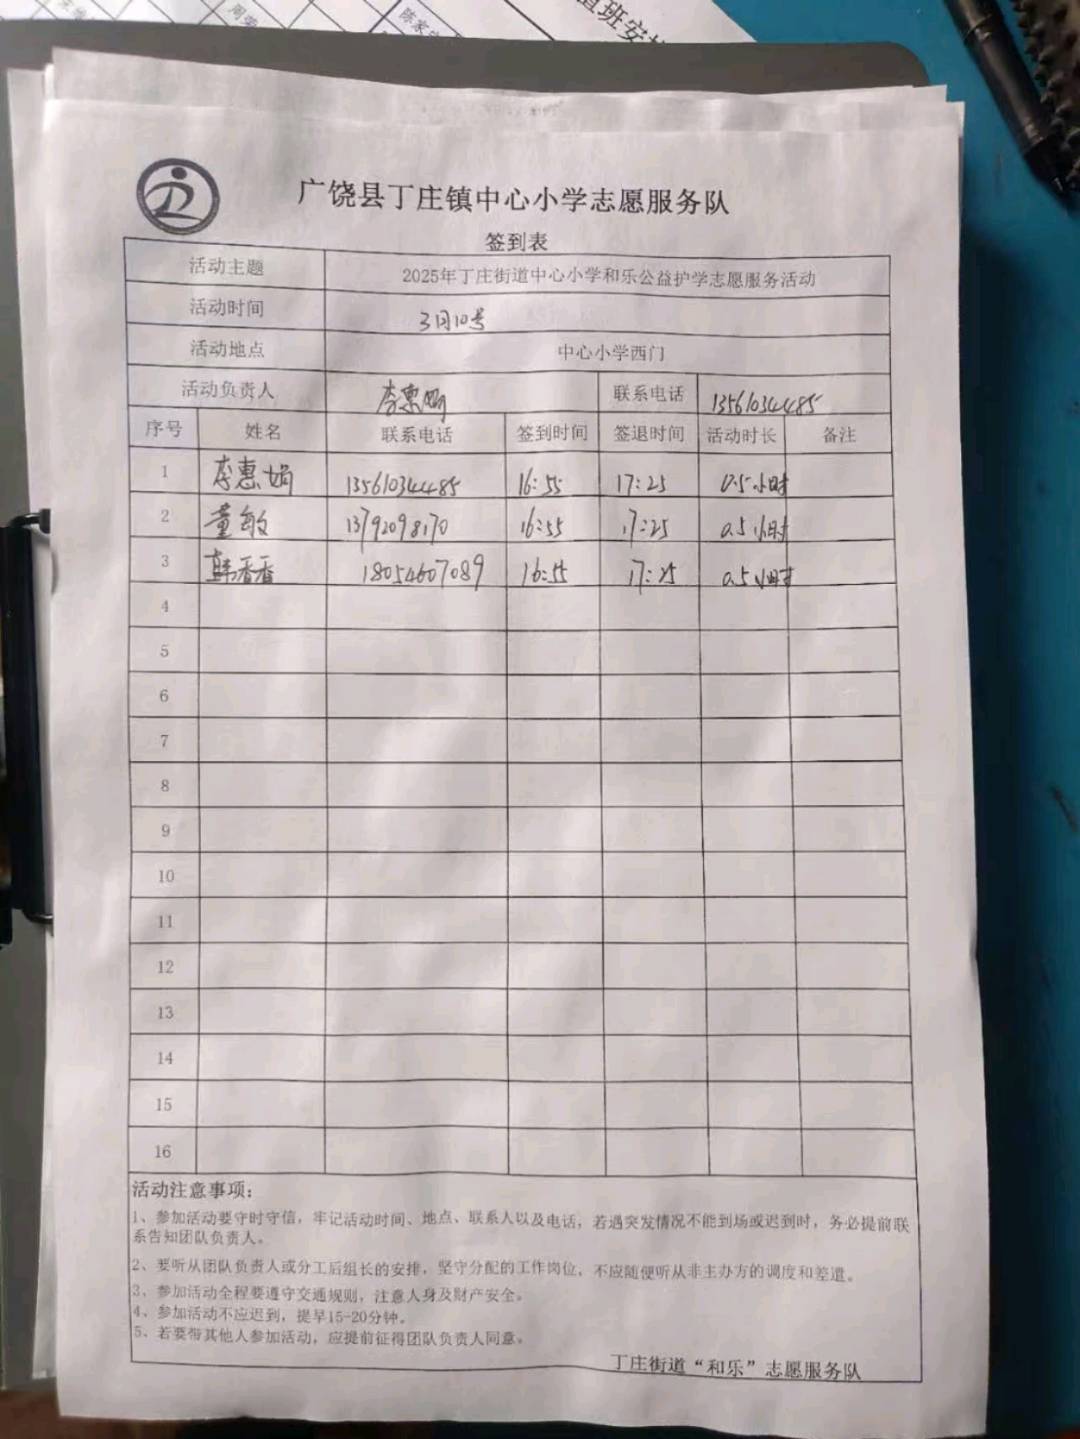 周
陈家
值班安
广饶县丁庄镇中心小学志愿服务队
签到表
活动主题 2025年丁庄街道中心小学和乐公益护学志愿服务活动
活动时间 3月10号
活动地点 中心小学西门
活动负责人 李惠娟 联系电话 13561034485
序号 姓名 联系电话 签到时间 签退时间 活动时长 备注
1 李惠娟 13561034485 16:55 17:25 0.5小时
2 董敏 13792098170 16:55 17:25 0.5小时
3 韩香香 18054607089 16:55 17:25 0.5小时
4
5
6
7
8
9
10
11
12
13
14
15
16
活动注意事项：
1、参加活动要守时守信，牢记活动时间、地点、联系人以及电话，若遇突发情况不能到场或迟到时，务必提前联
系告知团队负责人。
2、要听从团队负责人或分工后组长的安排，坚守分配的工作岗位，不应随便听从非主办方的调度和差遣。
3、参加活动全程要遵守交通规则，注意人身及财产安全。
4、参加活动不应迟到，提早15-20分钟。
5、若要带其他人参加活动，应提前征得团队负责人同意。
丁庄街道“和乐”志愿服务队